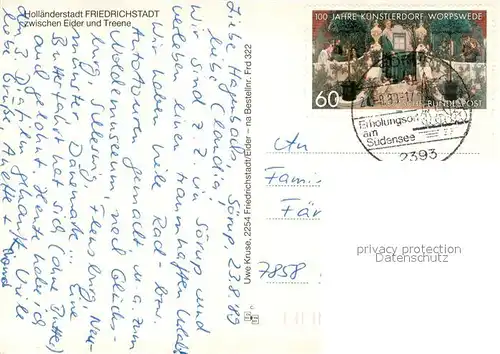 Holländerstadt FRIEDRICHSTADT
zwischen Eider und Treene
Sörup 23.8.89
Liebe Hagenbachs,
liebe Claudia!
Wir sind z. Z. in Sörup und
verleben einen traumhaften Urlaub.
Wir haben viele Rad- bzw.
Autotouren gemacht u. a. zum
Noldemuseum, nach Glücks-
burg, Schleswig, Flensburg, Neu-
münster, Dänemark ... eine
Butterfahrt hat sich (ohne Butter)
auch gelohnt. Heute habe ich
den
gekauft. Viele
liebe Grüße Anette +
Uwe Kruse, 2254 Friedrichstadt/Eider – na Bestellnr. Frd 322
100 JAHRE KÜNSTLERDORF WORPSWEDE
60
DEUTSCHE BUNDESPOST
Erholungsort
am
Südensee
2393
An
Fami
Fär
7858
privacy protection
Datenschutz